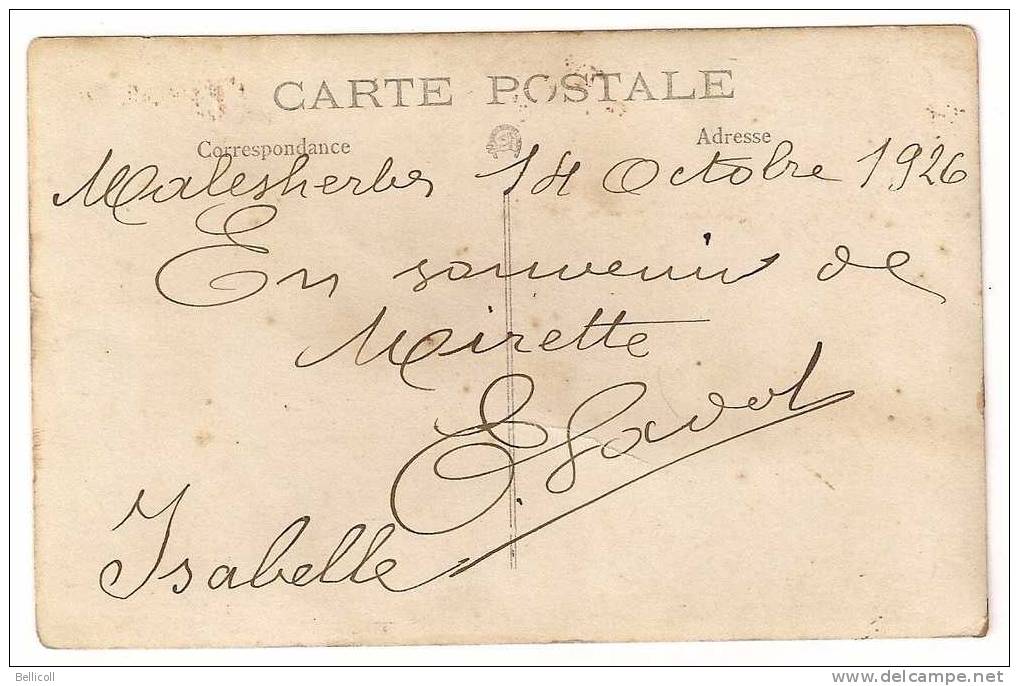 CARTE POSTALE
Correspondance
Adresse
Malesherbes 14 Octobre 1926
En souvenir de
Mirette
E.
Isabelle
Bellicoll
www.delcampe.net